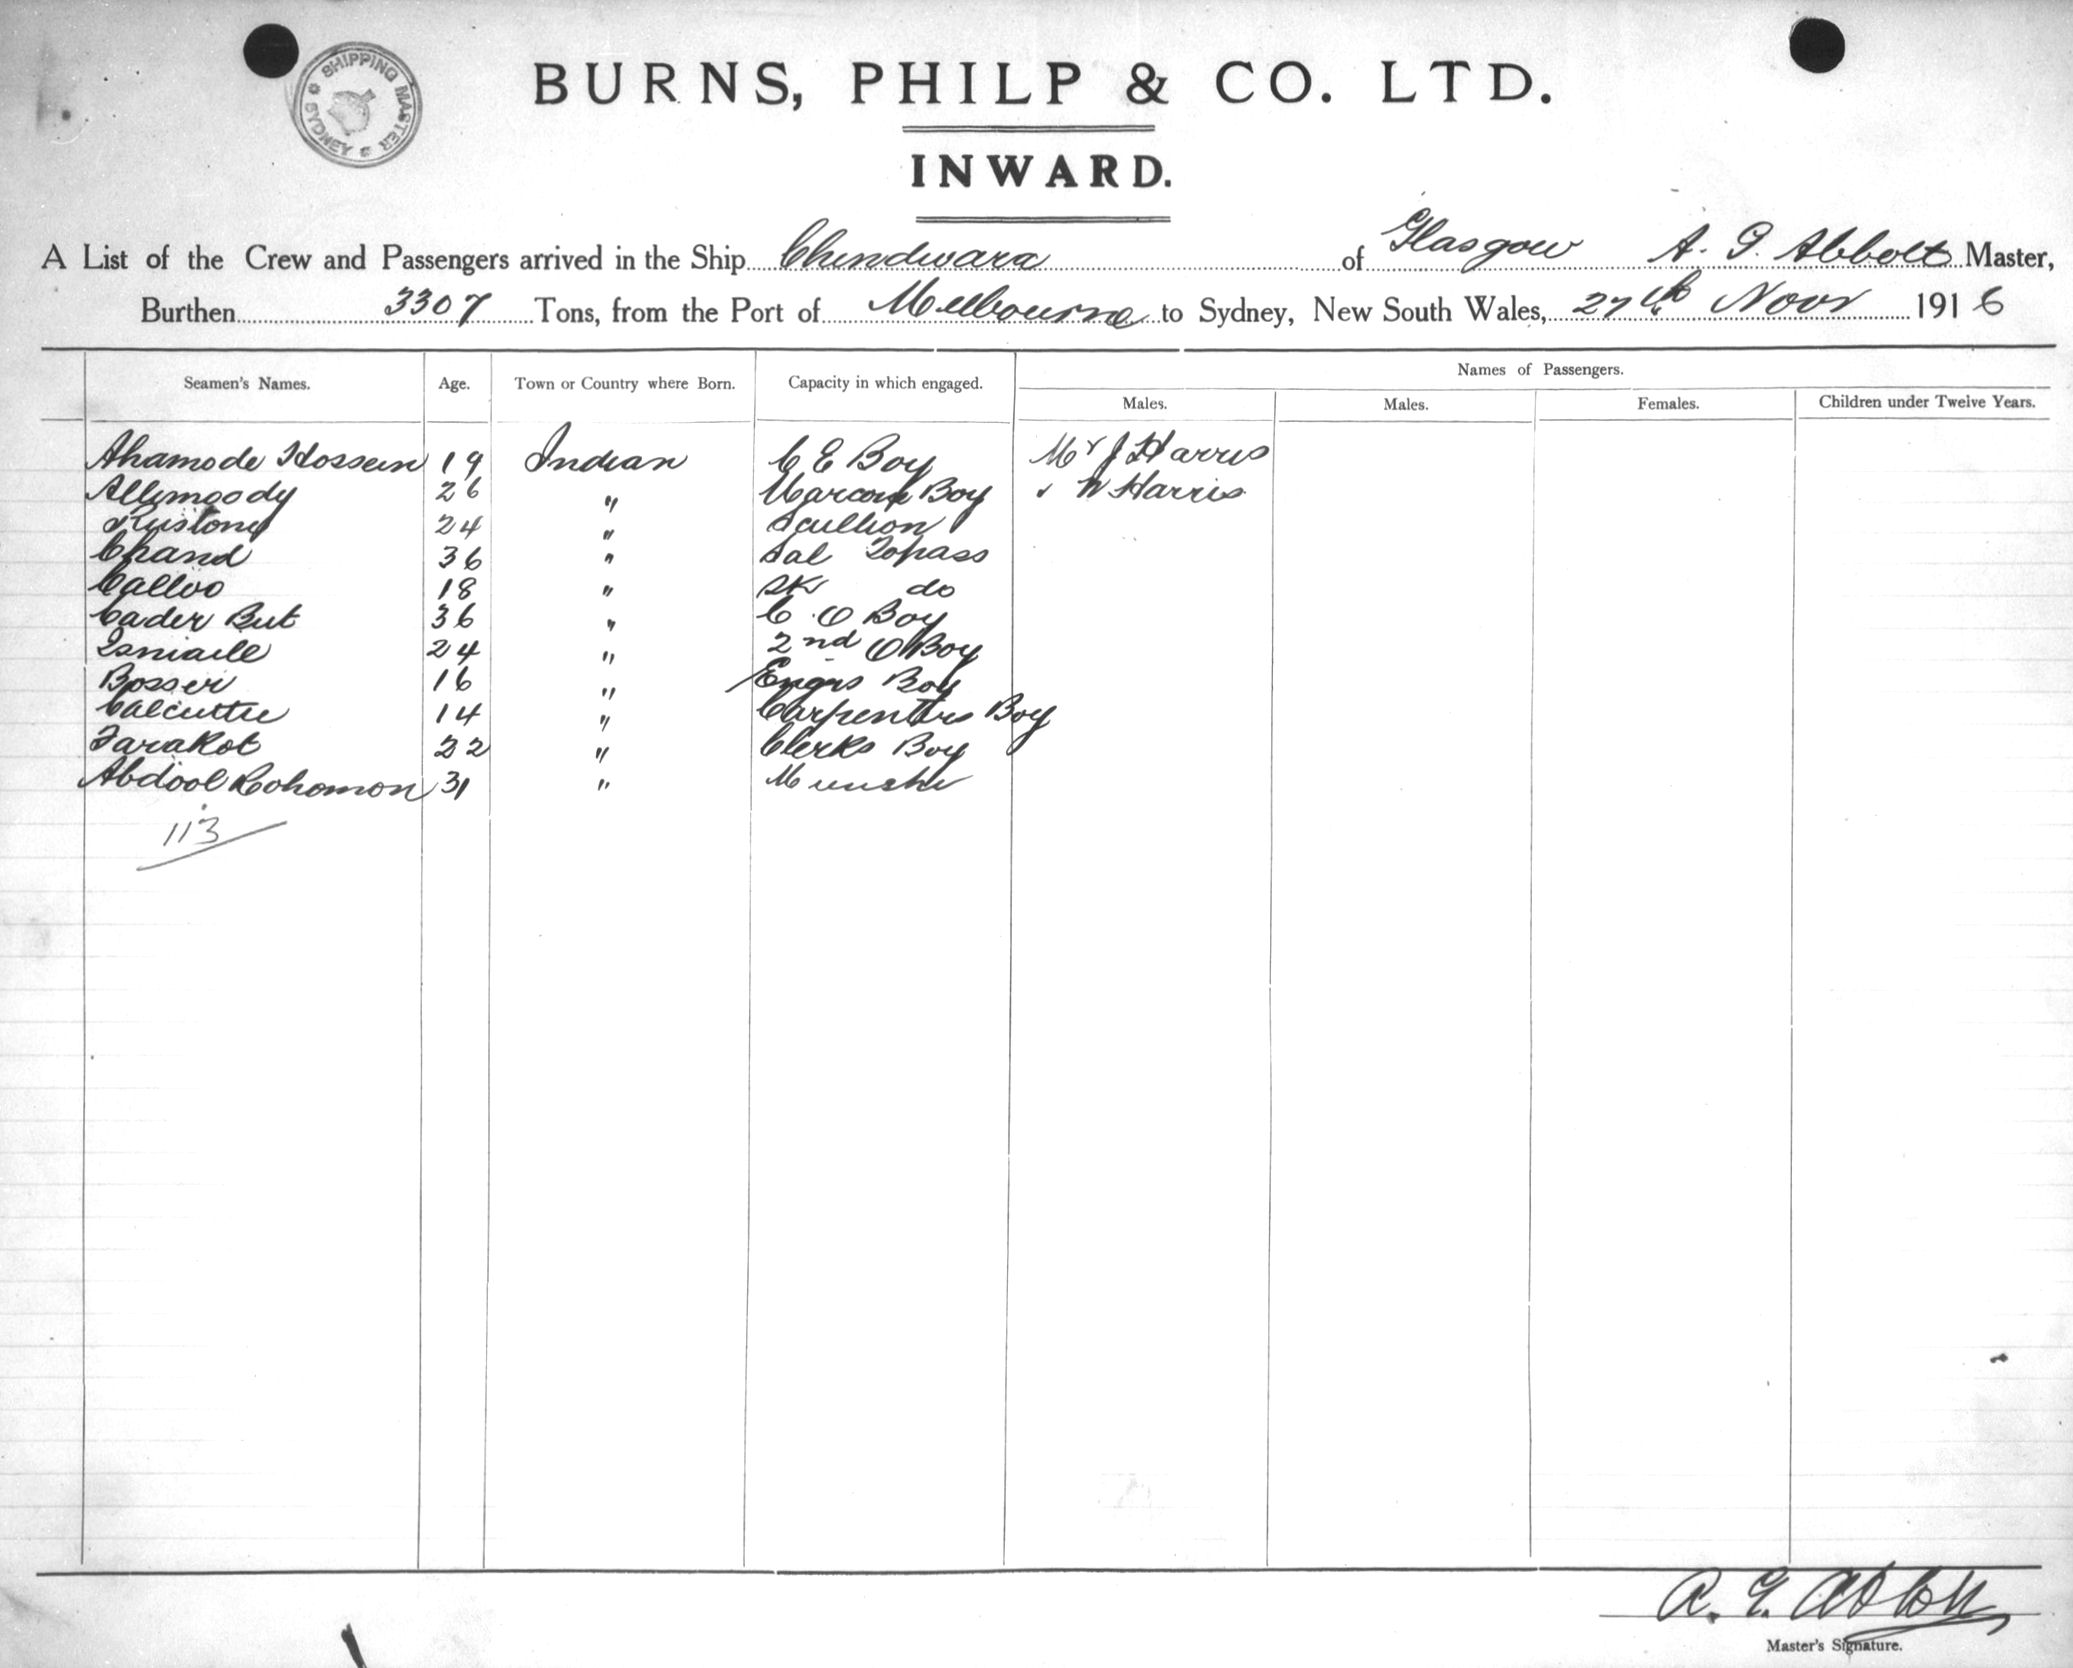 SHIPPING MASTER SYDNEY
BURNS, PHILP & CO. LTD.
INWARD.
A List of the Crew and Passengers arrived in the Ship Chindwara of Glasgow A. G. Abbott Master,
Burthen 3307 Tons, from the Port of Melbourne to Sydney, New South Wales, 27th Novr 1916
Names of Passengers.
Seamen's Names. Age. Town or Country where Born. Capacity in which engaged. Males. Males. Females. Children under Twelve Years.
Ahamode Hossein 19 Indian C E Boy Mr J Harris
Allymoody 26 " Marconi Boy " W Harris
24 " Scullion
Chand 36 " Sal Topass
Calloo 18 " do
Cader But 36 " C O Boy
Ismaile 24 " 2nd O Boy
Bosser 16 " Engrs Boy
Calcuttee 14 " Carpenters Boy
Farakot 22 " Clerks Boy
Abdool Rohomon 31 " Munshi
113
A. G. Abbott
Master's Signature.